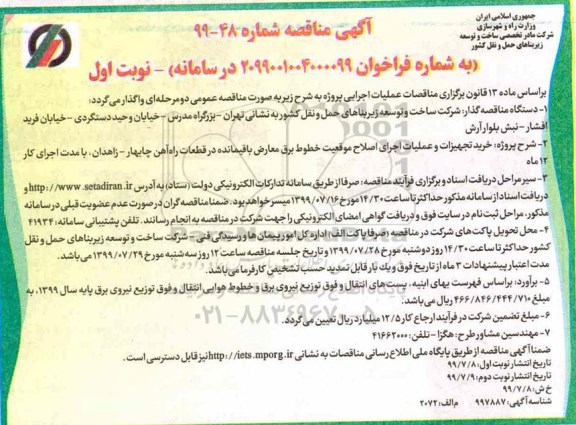 جمهوری اسلامی ایران
وزارت راه و شهرسازی
شرکت مادر تخصصی ساخت و توسعه
زیربناهای حمل و نقل کشور
آگهی مناقصه شماره ۴۸-۹۹
(به شماره فراخوان ۲۰۹۹۰۰۱۰۰۴۰۰۰۰۹۹ در سامانه) - نوبت اول
براساس ماده ۱۳ قانون برگزاری مناقصات عملیات اجرایی پروژه به شرح زیر به صورت مناقصه عمومی دو مرحله‌ای واگذار می‌گردد:
۱- دستگاه مناقصه گذار: شرکت ساخت و توسعه زیربناهای حمل و نقل کشور به نشانی تهران - بزرگراه مدرس - خیابان وحید دستگردی - خیابان فرید
افشار - نبش بلوار آرش
۲- شرح پروژه: خرید تجهیزات و عملیات اجرای اصلاح موقعیت خطوط برق معارض باقیمانده در قطعات راه آهن چابهار - زاهدان، با مدت اجرای کار
۱۲ ماه
۳- سیر مراحل دریافت اسناد و برگزاری فرآیند مناقصه: صرفا از طریق سامانه تدارکات الکترونیکی دولت (ستاد) به آدرس http://www.setadiran.ir و
دریافت اسناد از سامانه مذکور حداکثر تا ساعت ۱۴/۳۰ مورخ ۱۳۹۹/۰۷/۱۶ میسر خواهد بود. ضمنا مناقصه گران در صورت عدم عضویت قبلی در سامانه
مذکور، مراحل ثبت نام در سایت فوق و دریافت گواهی امضای الکترونیکی را جهت شرکت در مناقصه به انجام رسانند. تلفن پشتیبانی سامانه: ۴۱۹۳۴
۴- محل تحویل پاکت‌های شرکت در مناقصه (صرفا پاکت الف): اداره کل امور پیمان ها و رسیدگی فنی - شرکت ساخت و توسعه زیربناهای حمل و نقل
کشور حداکثر تا ساعت ۱۴/۳۰ روز دوشنبه مورخ ۱۳۹۹/۰۷/۲۸ و تاریخ جلسه مناقصه ساعت ۱۲ روز سه شنبه مورخ ۱۳۹۹/۰۷/۲۹ می‌باشد.
مدت اعتبار پیشنهادات ۳ ماه از تاریخ فوق و یک بار قابل تمدید حسب تشخیص کارفرما می‌باشد.
۵- برآورد: براساس فهرست بهای ابنیه، پست های انتقال و فوق توزیع نیروی برق و خطوط هوایی انتقال و فوق توزیع نیروی برق پایه سال ۱۳۹۹، به
مبلغ ۴۶۶/۸۴۶/۴۴۴/۷۱۰ ریال می‌باشد.
۶- مبلغ تضمین شرکت در فرآیند ارجاع کار ۱۲/۵ میلیارد ریال تعیین می‌گردد.
۷- مهندسین مشاور طرح: هگزا - تلفن: ۴۱۶۶۲۰۰۰
ضمنا آگهی مناقصه از طریق پایگاه ملی اطلاع رسانی مناقصات به نشانی http://iets.mporg.ir نیز قابل دسترسی است.
تاریخ انتشار نوبت اول: ۹۹/۷/۸
تاریخ انتشار نوبت دوم: ۹۹/۷/۹
خ ش: ۹۹/۷/۸
شناسه آگهی: ۹۹۷۸۸۷ م الف: ۲۰۷۲
۰۲۱-۸۸۳۴۹۶۷۰-۵